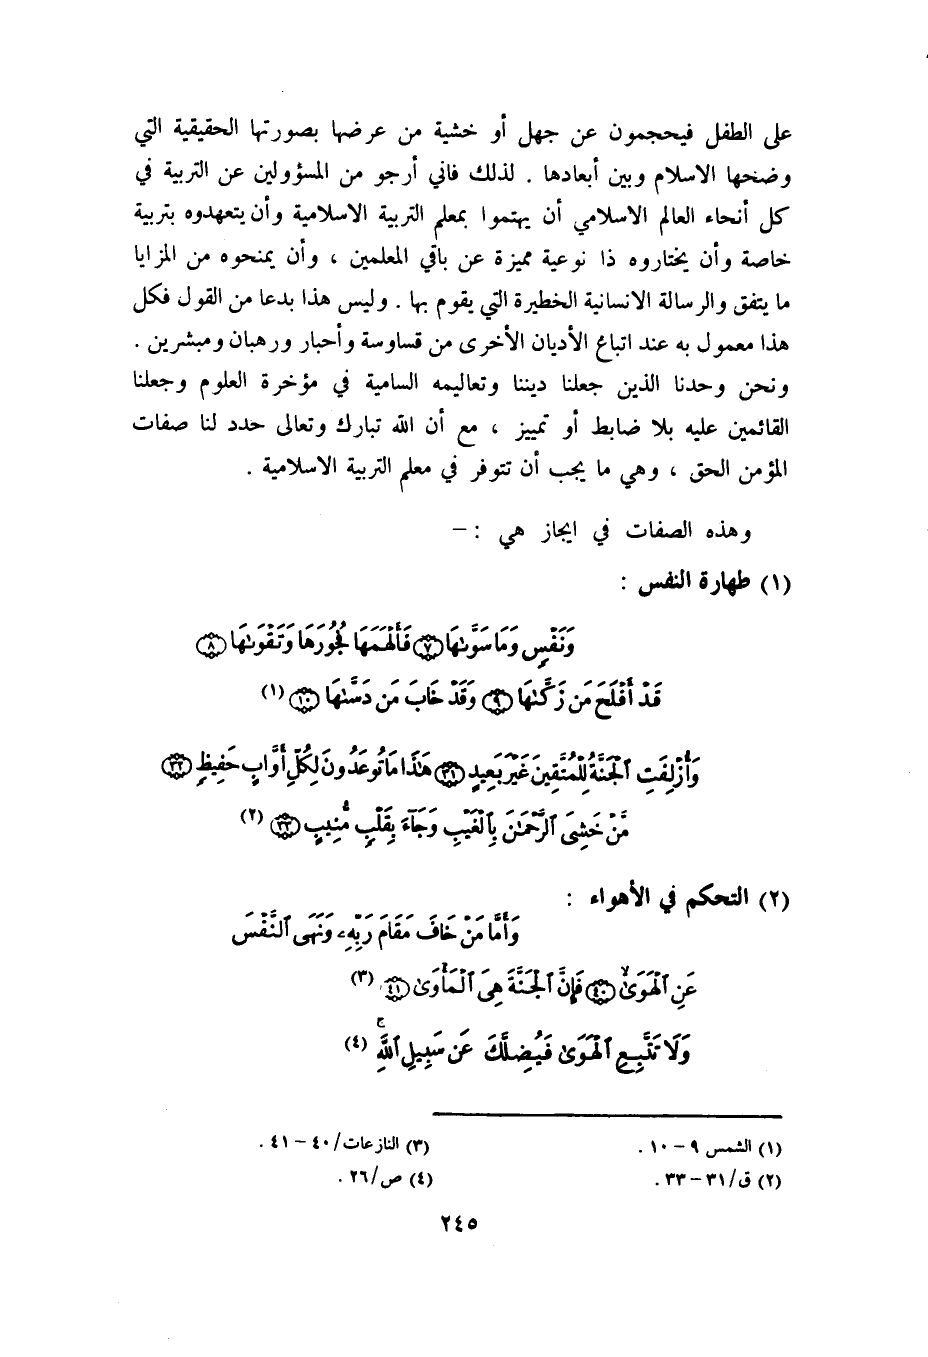 على الطفل فيحجمون عن جهل أو خشية من عرضها بصورتها الحقيقية التي
وضحها الاسلام وبين أبعادها . لذلك فاني أرجو من المسؤولين عن التربية في
كل أنحاء العالم الاسلامي أن يهتموا بمعلم التربية الاسلامية وأن يتعهدوه بتربية
خاصة وأن يختاروه ذا نوعية مميزة عن باقي المعلمين ، وأن يمنحوه من المزايا
ما يتفق والرسالة الانسانية الخطيرة التي يقوم بها . وليس هذا بدعا من القول فكل
هذا معمول به عند اتباع الأديان الأخرى من قساوسة وأحبار ورهبان ومبشرين .
ونحن وحدنا الذين جعلنا ديننا وتعاليمه السامية في مؤخرة العلوم وجعلنا
القائمين عليه بلا ضابط أو تمييز ، مع أن الله تبارك وتعالى حدد لنا صفات
المؤمن الحق ، وهي ما يجب أن تتوفر في معلم التربية الاسلامية .
وهذه الصفات في ايجاز هي : –
(١) طهارة النفس :
وَنَفْسٍ وَمَا سَوَّىٰهَا ٧ فَأَلْهَمَهَا فُجُورَهَا وَتَقْوَىٰهَا ٨
قَدْ أَفْلَحَ مَن زَكَّىٰهَا ٩ وَقَدْ خَابَ مَن دَسَّىٰهَا ١٠ (١)
وَأُزْلِفَتِ ٱلْجَنَّةُ لِلْمُتَّقِينَ غَيْرَ بَعِيدٍ ٣١ هَٰذَا مَا تُوعَدُونَ لِكُلِّ أَوَّابٍ حَفِيظٍ ٣٢
مَّنْ خَشِىَ ٱلرَّحْمَٰنَ بِٱلْغَيْبِ وَجَآءَ بِقَلْبٍ مُّنِيبٍ ٣٣ (٢)
(٢) التحكم في الأهواء :
وَأَمَّا مَنْ خَافَ مَقَامَ رَبِّهِۦ وَنَهَى ٱلنَّفْسَ
عَنِ ٱلْهَوَىٰ ٤٠ فَإِنَّ ٱلْجَنَّةَ هِىَ ٱلْمَأْوَىٰ ٤١ (٣)
وَلَا تَتَّبِعِ ٱلْهَوَىٰ فَيُضِلَّكَ عَن سَبِيلِ ٱللَّهِ ۚ (٤)
(١) الشمس ٩ – ١٠ .
(٢) ق/٣١ – ٣٣ .
(٣) النازعات/٤٠ – ٤١ .
(٤) ص/٢٦ .
٢٤٥